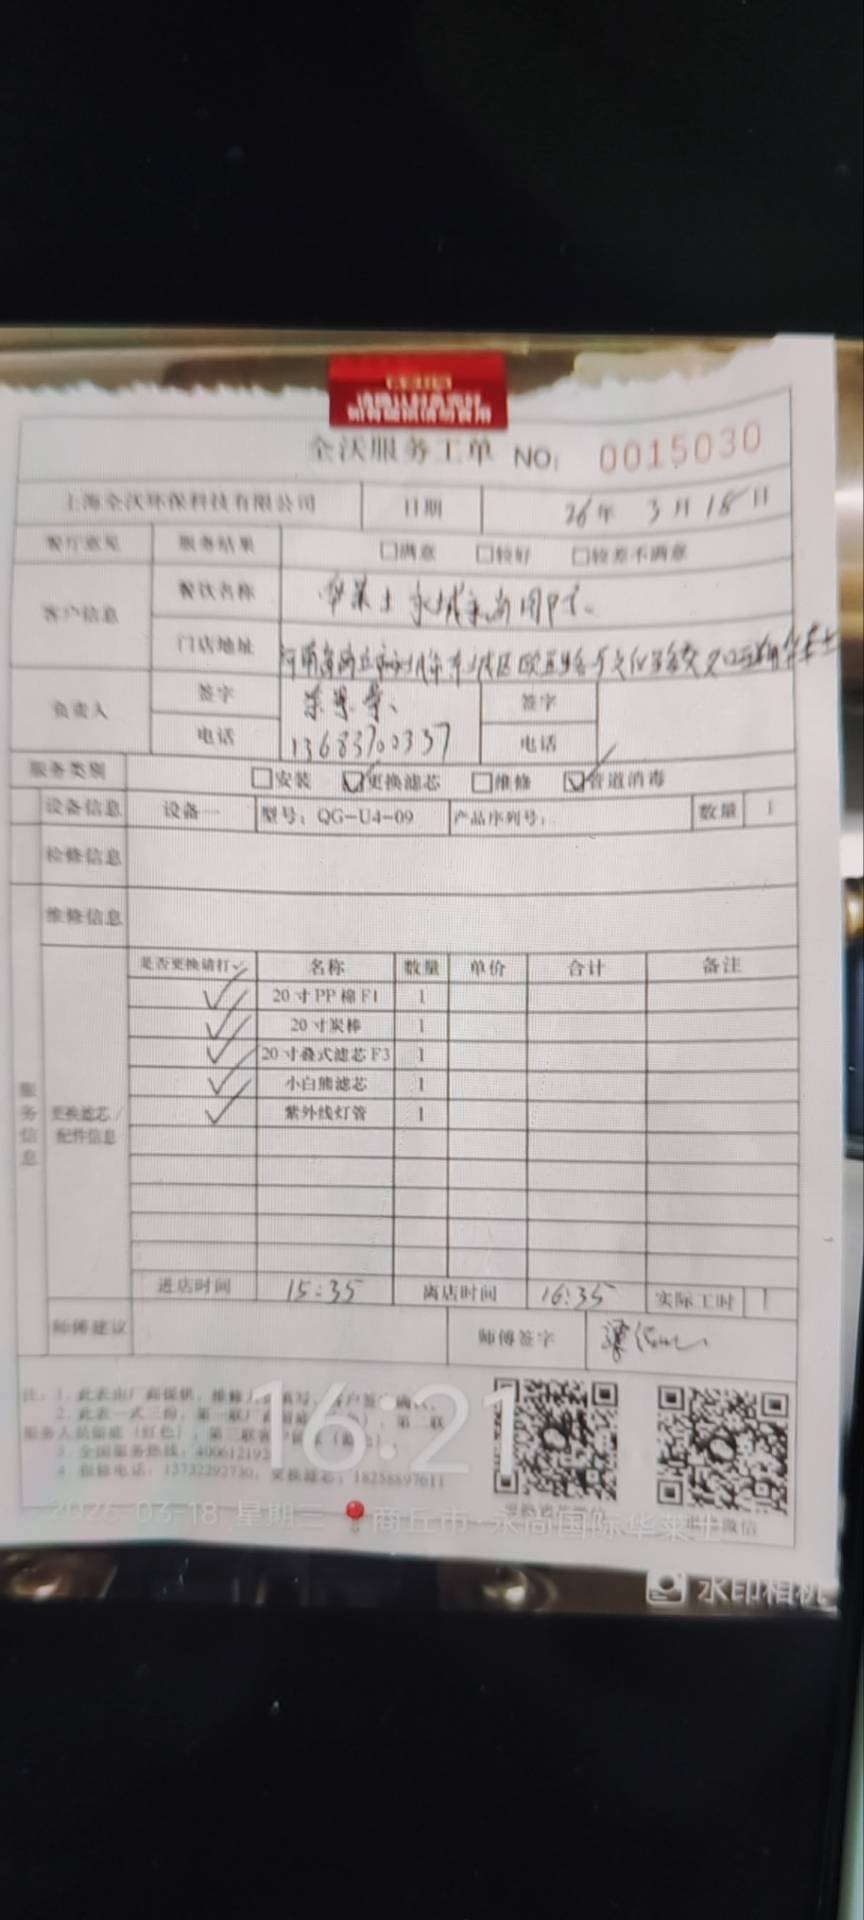 全沃服务工单 NO: 0015030
上海全沃环保科技有限公司 日期 26年 3月18日
餐厅意见 服务结果 □满意 □较好 □较差不满意
客户信息 餐饮名称 华莱士永城永尚国际店
门店地址
负责人 签字 签字
电话 13683700337 电话
服务类别 □安装 ☑更换滤芯 □维修 ☑管道消毒
设备信息 设备一 型号: QG-U4-09 产品序列号: 数量 1
检修信息
维修信息
是否更换请打✓ 名称 数量 单价 合计 备注
✓ 20寸PP棉F1 1
✓ 20寸炭棒 1
✓ 20寸叠式滤芯F3 1
✓ 小白熊滤芯 1
✓ 紫外线灯管 1
服务信息
更换滤芯/
配件信息
进店时间 15:35 离店时间 16:35 实际工时 1
师傅建议 师傅签字
注: 1. 此表由厂商提供, 维修人员填写, 客户签字确认。
2. 此表一式三份, 第一联厂商留底
服务人员留底（红色）, 第三联客户留底
3. 全国服务热线: 400612193
4. 报修电话: 13732292730, 更换滤芯: 18258897611
16:21
2026-03-18 星期三 商丘市·永尚国际华莱士
水印相机